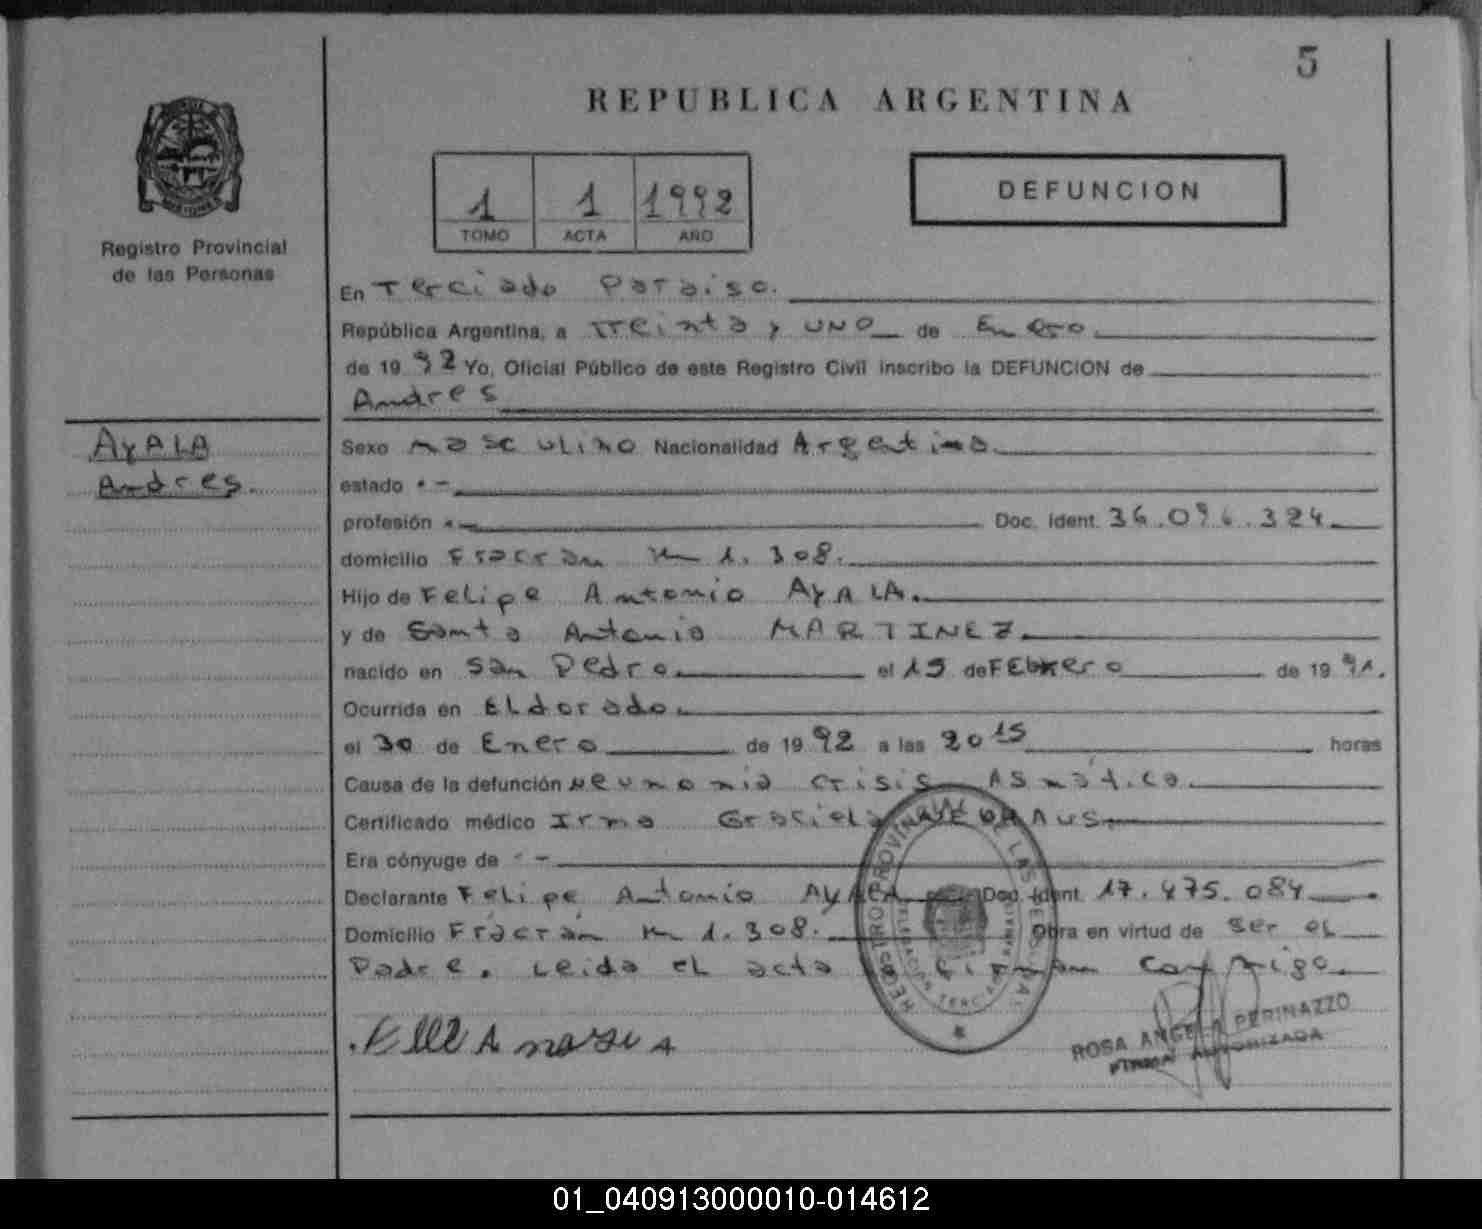 5
REPUBLICA ARGENTINA
Registro Provincial
de las Personas
1 1 1992
TOMO ACTA AÑO
DEFUNCION
En Terciado Paraiso.
República Argentina, a Treinta y UNO de Enero
de 19 92 Yo, Oficial Público de este Registro Civil inscribo la DEFUNCION de
Andres
AYALA
Andres.
Sexo masculino Nacionalidad Argentina.
estado
profesión Doc. Ident. 36.096.324.
domicilio Fracran Km 1.308.
Hijo de Felipe Antonio AYALA.
y de Santa Antonia MARTINEZ.
nacido en San Pedro el 15 de FEbrero de 19 91.
Ocurrida en ELdorado.
el 30 de Enero de 19 92 a las 20 15 horas
Causa de la defunción Neumonia crisis Asmática.
Certificado médico Irma Graciela
Era cónyuge de
Declarante Felipe Antonio AYALA Doc. Ident. 17.475.084
Domicilio Frácrán Km 1.308. Obra en virtud de ser el
Padre. Leida el acta firman conmigo.
REGISTRO PROVINCIAL DE LAS PERSONAS
ROSA ANGELA PERINAZZO
FIRMA AUTORIZADA
01_040913000010-014612